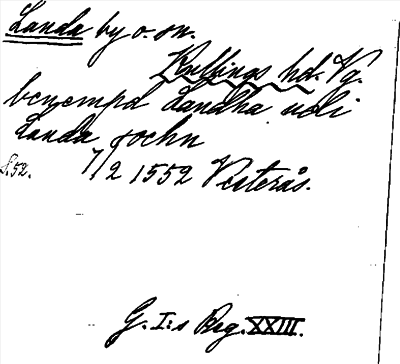 Landa by o. sn.
Kullings hd. Vg.
benempd Landha udi
Landa sochn
S. 52. 7/2 1552 Vesterås.
G. I:s Reg. XXIII.